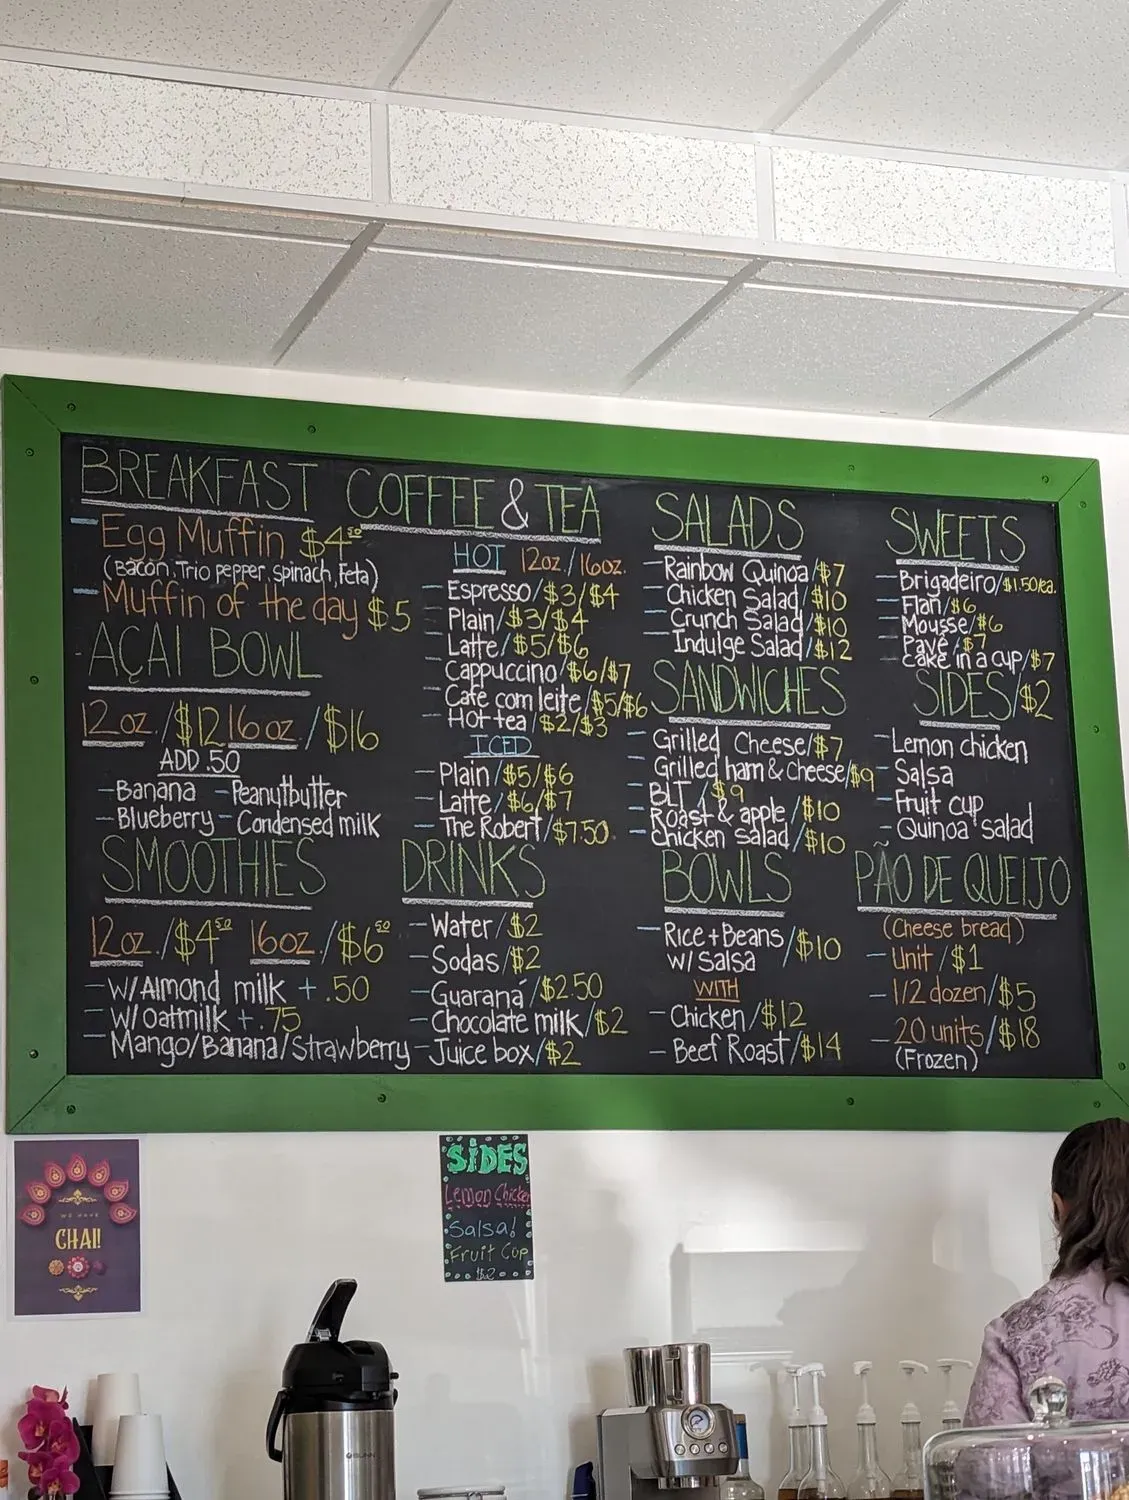 BREAKFAST
- Egg Muffin $4.50
(Bacon, Trio pepper, spinach, Feta)
- Muffin of the day $5
AÇAI BOWL
12 oz./$12 16 oz/$16
ADD .50
- Banana - Peanutbutter
- Blueberry - Condensed milk
SMOOTHIES
12oz./$4.50 16oz./$6.50
- w/Almond milk + .50
- w/oatmilk + .75
- Mango/Banana/Strawberry
COFFEE & TEA
HOT 12oz./16oz.
- Espresso/$3/$4
- Plain/$3/$4
- Latte/$5/$6
- Cappuccino/$6/$7
- Café com leite/$5/$6
- Hot tea/$2/$3
ICED
- Plain/$5/$6
- Latte/$6/$7
- The Robert/$7.50
DRINKS
- Water/$2
- Sodas/$2
- Guaraná/$2.50
- Chocolate milk/$2
- Juice box/$2
SALADS
- Rainbow Quinoa/$7
- Chicken Salad/$10
- Crunch Salad/$10
- Indulge Salad/$12
SANDWICHES
- Grilled Cheese/$7
- Grilled ham & cheese/$9
- BLT/$9
- Roast & apple/$10
- Chicken Salad/$10
BOWLS
- Rice + Beans/$10
w/ Salsa
WITH
- Chicken/$12
- Beef Roast/$14
SWEETS
- Brigadeiro/$1.50/ea.
- Flan/$6
- Mousse/$6
- Pavê/$7
- Cake in a cup/$7
SIDES/$2
- Lemon chicken
- Salsa
- Fruit cup
- Quinoa salad
PÃO DE QUEIJO
(Cheese bread)
- Unit/$1
- 1/2 dozen/$5
- 20 units/$18
(Frozen)
WE HAVE
CHAI!
SIDES
Lemon Chicken
Salsa!
Fruit Cup
$2
BUNN